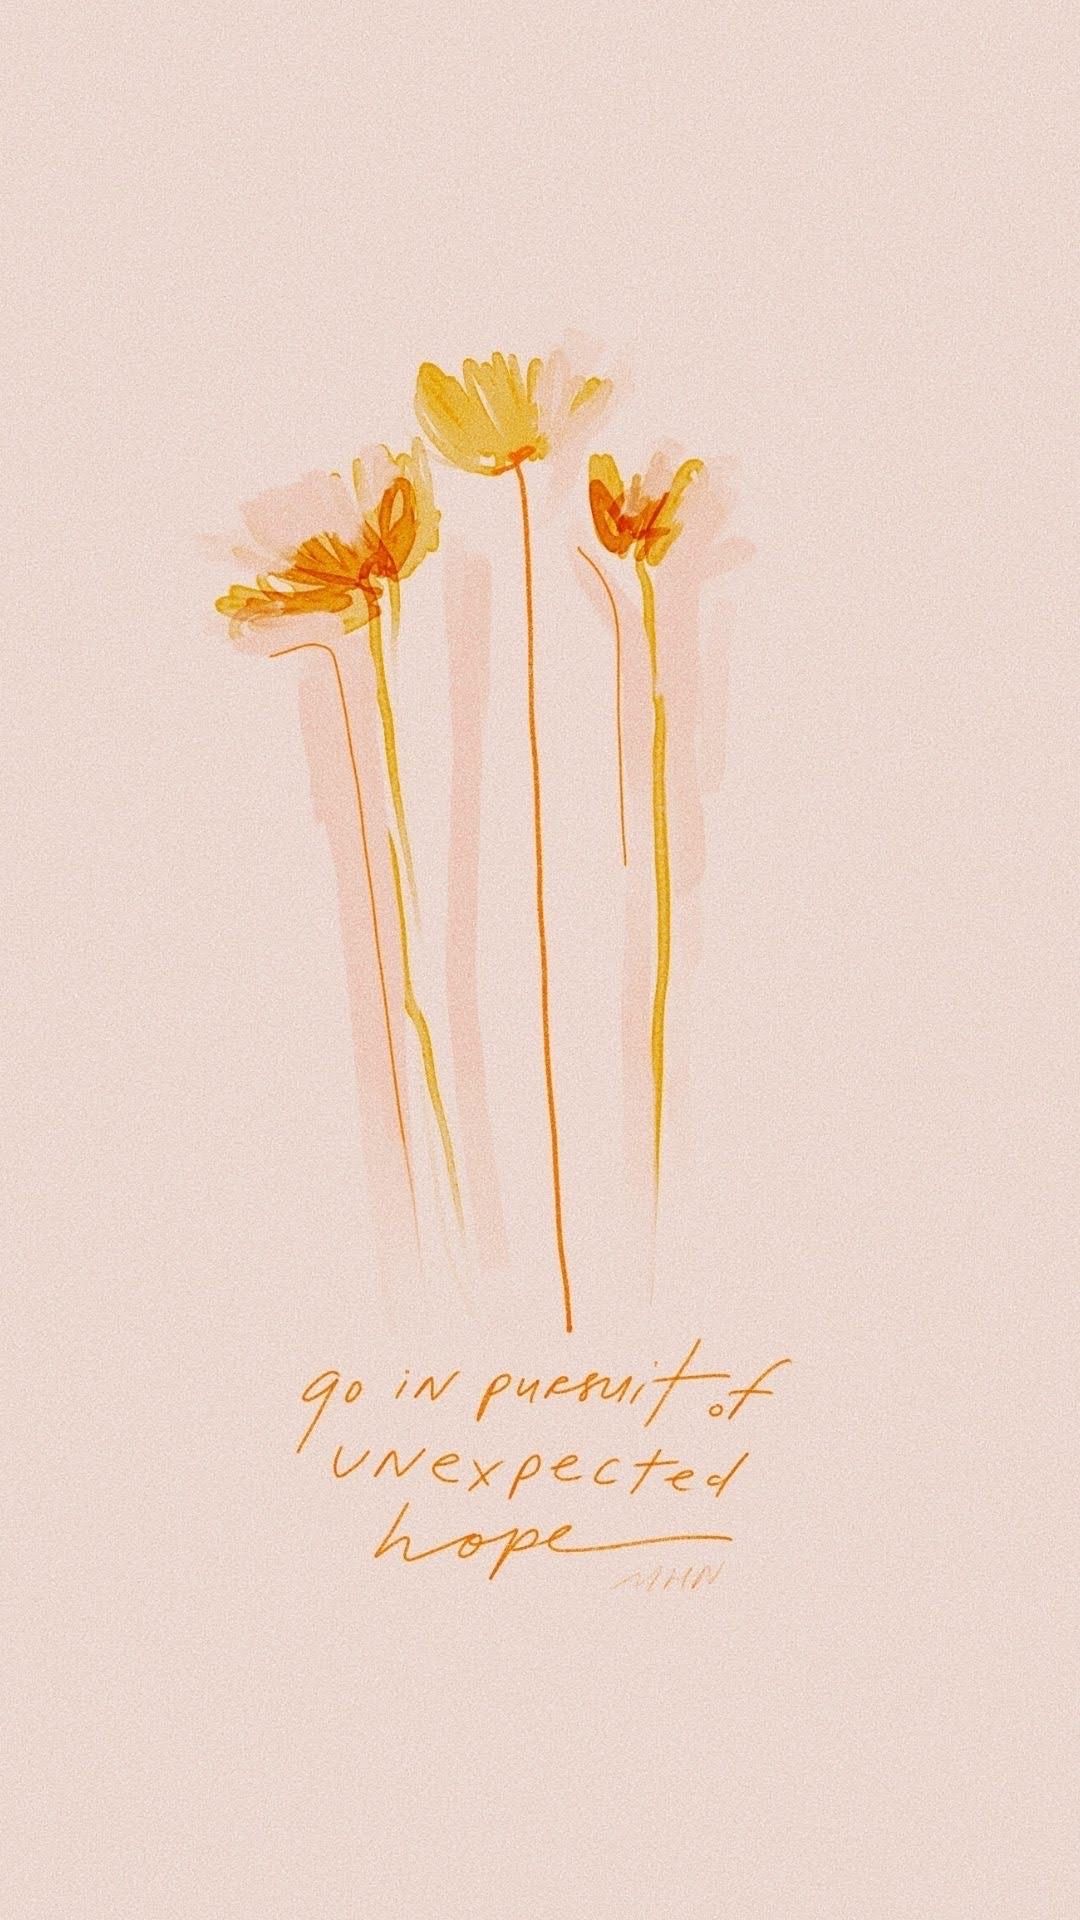 go in pursuit of
unexpected
hope
MHN